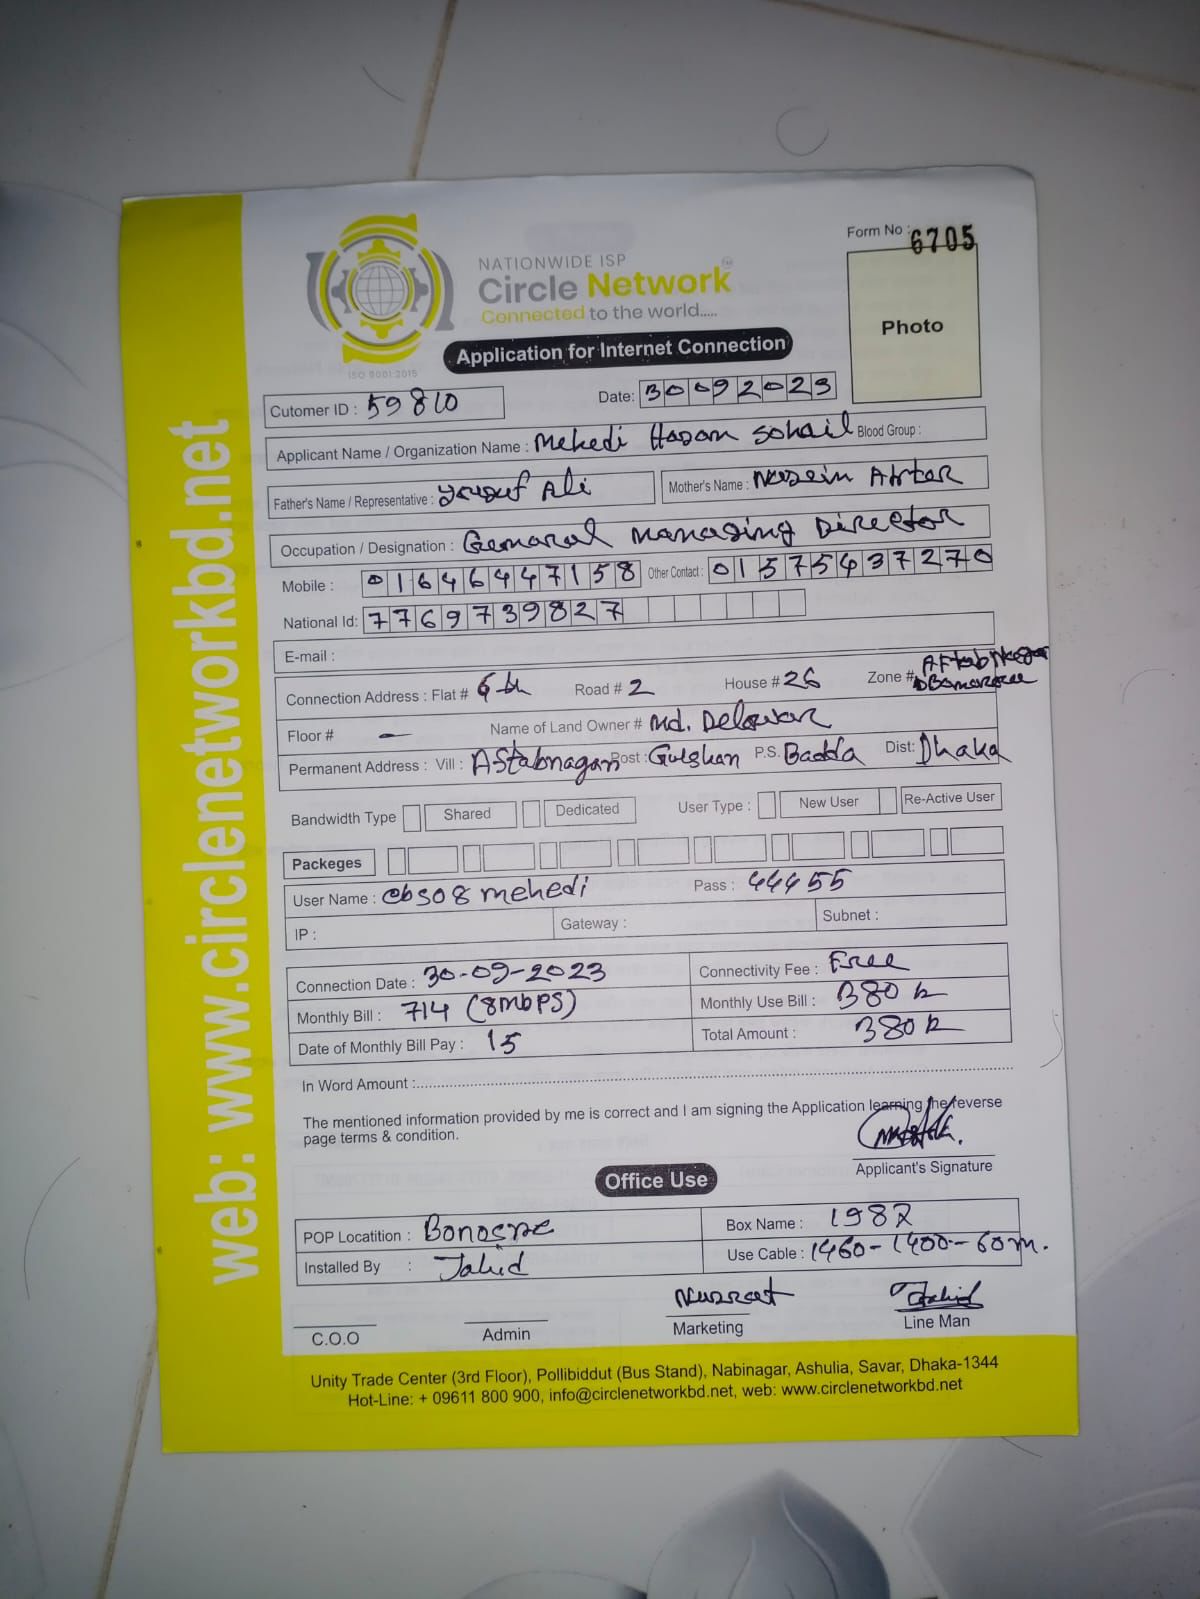 Form No : 6705
NATIONWIDE ISP
Circle Network
Connected to the world.....
ISO 9001:2015
Photo
Application for Internet Connection
Cutomer ID : 59810 Date: 30092023
Applicant Name / Organization Name : Mehedi Hasan Sohail Blood Group :
Father's Name / Representative : Yousuf Ali Mother's Name :
Occupation / Designation : Genaral Managing Director
Mobile : 01646447158 Other Contact : 01575437270
National Id: 7769739827
E-mail :
Connection Address : Flat # 6th Road # 2 House # 26 Zone #
Floor # — Name of Land Owner # Md. Delowar
Permanent Address : Vill : Aftabnagar Post : Gulshan P.S. Badda Dist: Dhaka
Bandwidth Type Shared Dedicated User Type : New User Re-Active User
Packeges
User Name : mehedi Pass : 44455
IP : Gateway : Subnet :
Connection Date : 30-09-2023 Connectivity Fee : Free
Monthly Bill : 714 (8MbPS) Monthly Use Bill : 380
Date of Monthly Bill Pay : 15 Total Amount : 380
In Word Amount :
The mentioned information provided by me is correct and I am signing the Application learning the reverse
page terms & condition.
Applicant's Signature
Office Use
POP Locatition : Box Name : 1982
Installed By : Jahid Use Cable : 1460-1400-60m.
Nusrat
C.O.O Admin Marketing Line Man
Unity Trade Center (3rd Floor), Pollibiddut (Bus Stand), Nabinagar, Ashulia, Savar, Dhaka-1344
Hot-Line: + 09611 800 900, info@circlenetworkbd.net, web: www.circlenetworkbd.net
web: www.circlenetworkbd.net